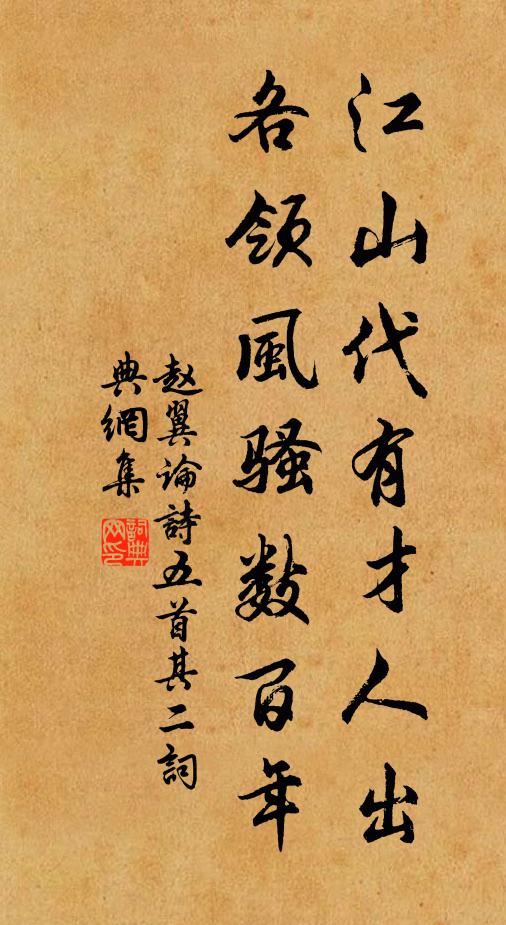 江山代有才人出
各领風骚数百年
赵翼论詩五首其二詞
典網集
詞典網印